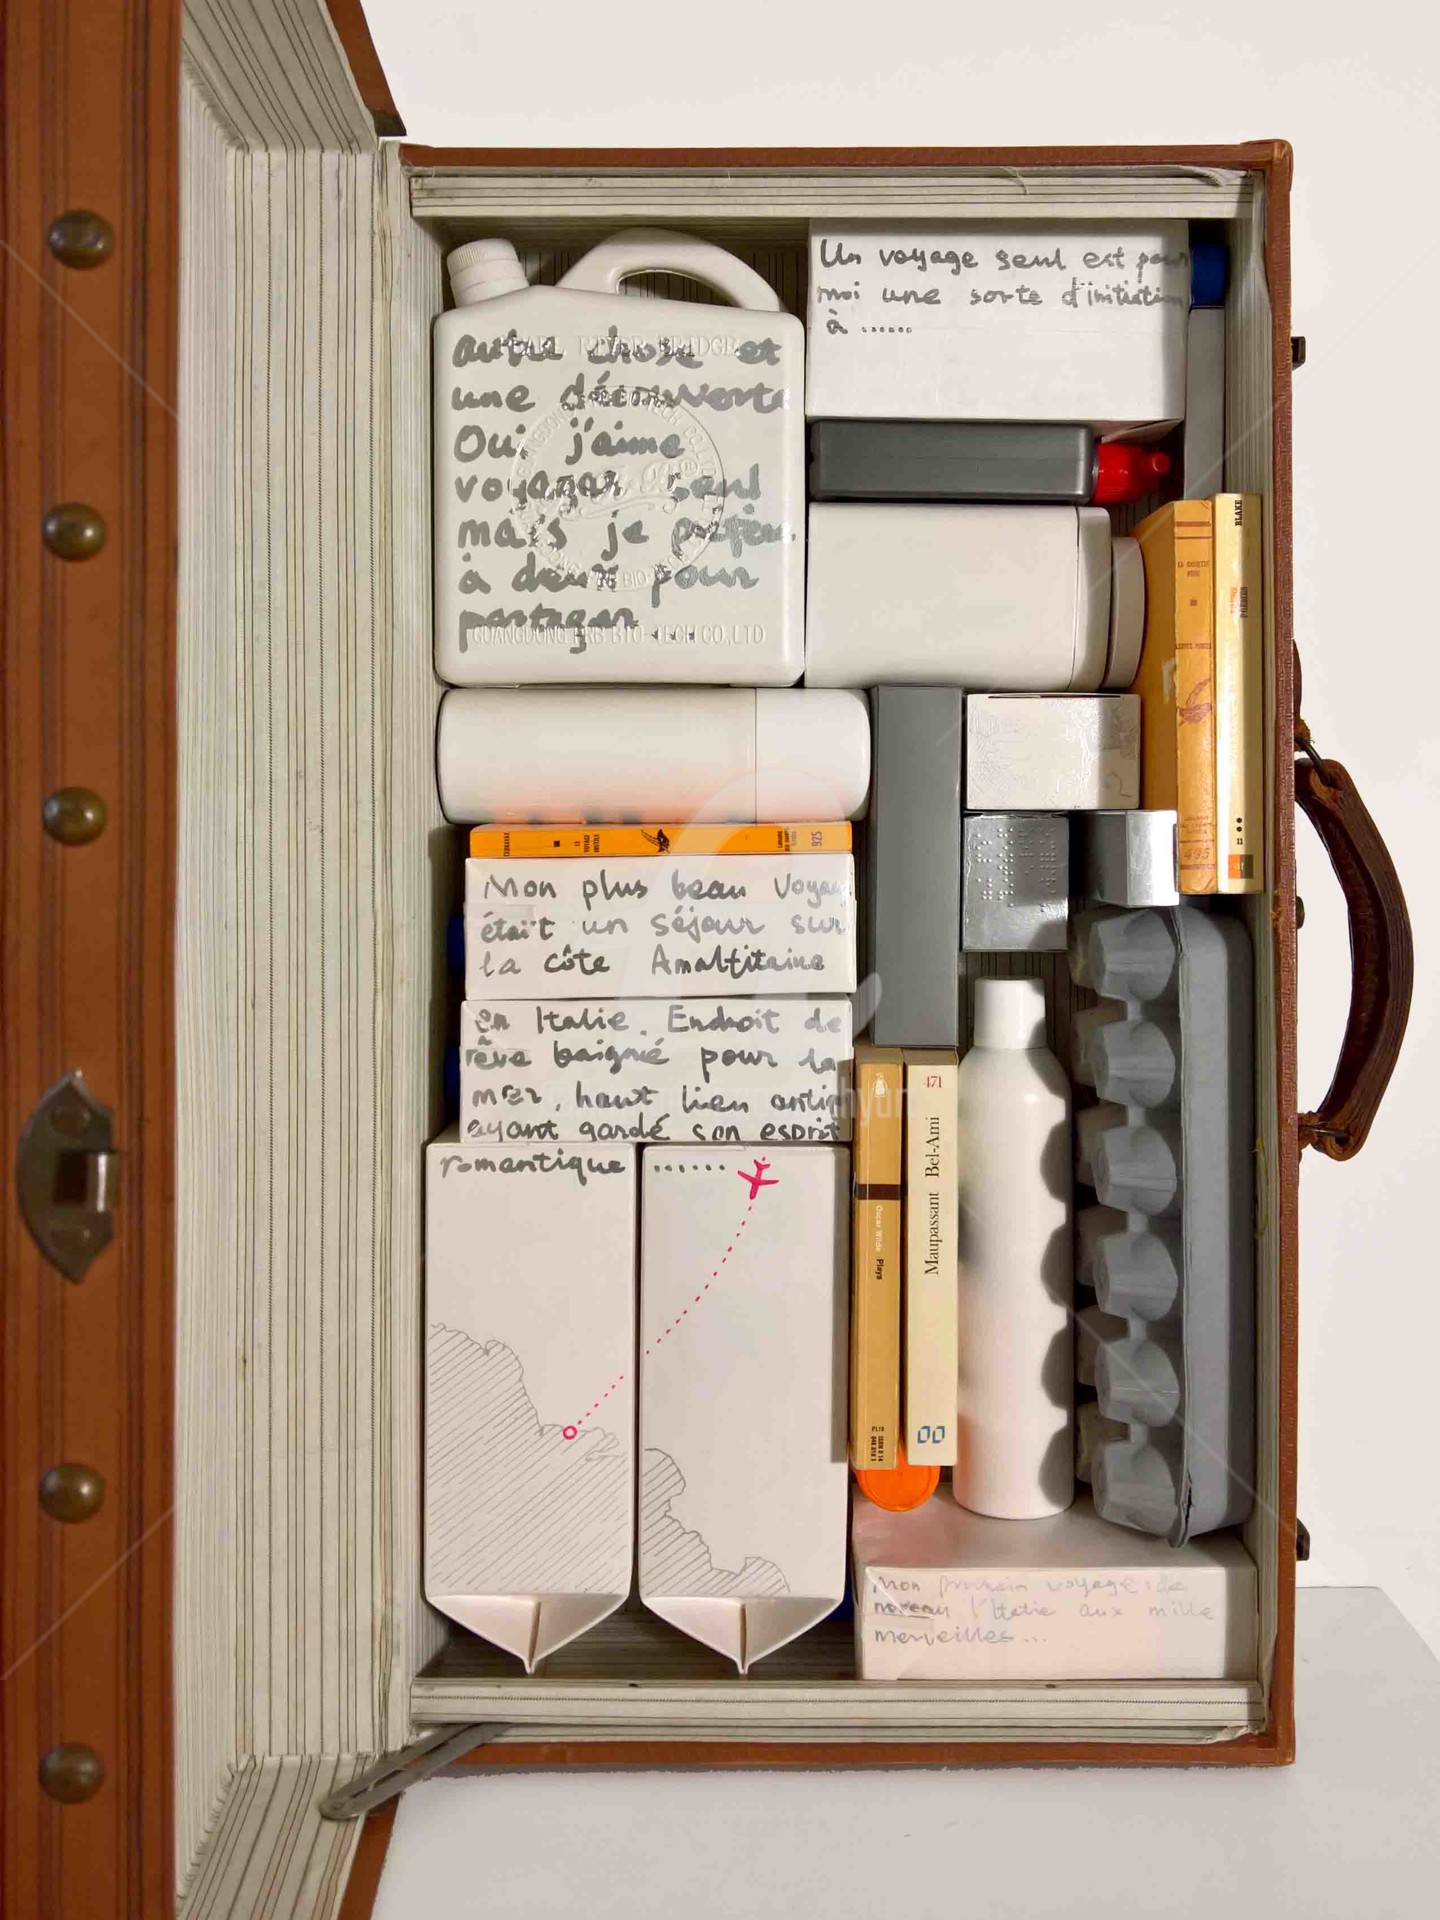 Un voyage seul est pour
moi une sorte d'initiation
à ......
PEARL RIVER BRIDGE
autre chose et
une découverte
Oui j'aime
voyager seul
mais je préfère
à deux pour
partager ....
GUANGDONG PRB BIO-TECH CO.,LTD
BLAKE
POÈMES
495
925
Mon plus beau Voyage
était un séjour sur
la côte Amalfitaine
en Italie. Endroit de
rêve baigné pour la
mer, haut lieu antique
ayant gardé son esprit
romantique ......
Oscar Wilde Plays
471
Maupassant Bel-Ami
Mon prochain voyage : de
nouveau l'Italie aux mille
merveilles...